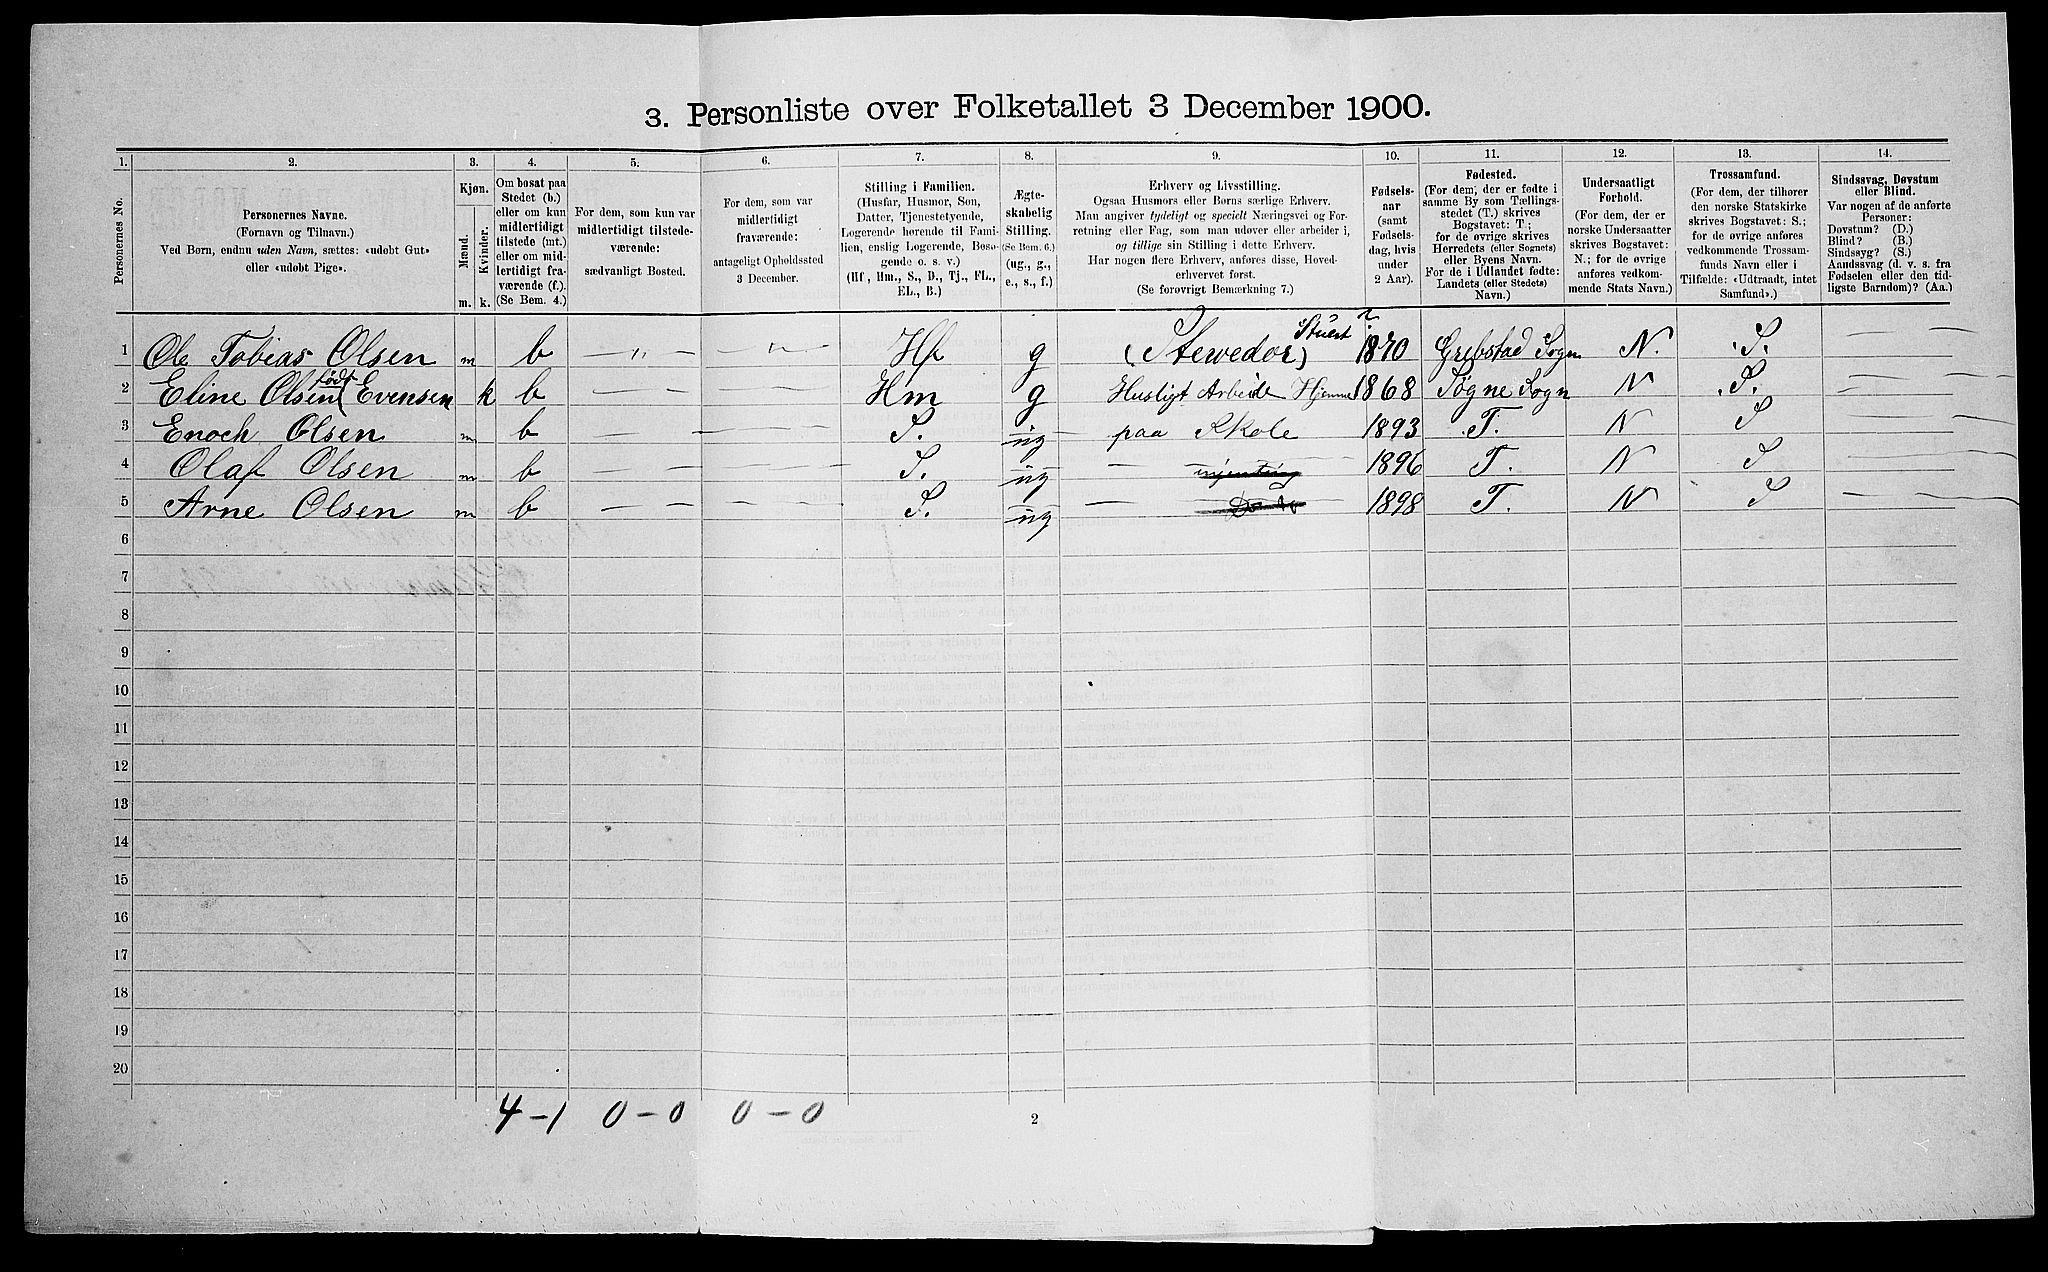 3. Personliste over Folketallet 3 December 1900.
1. 2. 3. 4. 5. 6. 7. 8. 9. 10. 11. 12. 13. 14.
Personernes No.
Personernes Navne.
(Fornavn og Tilnavn.)
Ved Børn, endnu uden Navn, sættes: «udøbt Gut»
eller «udøbt Pige».
Kjøn.
Mænd.
Kvinder.
m. k.
Om bosat paa
Stedet (b.)
eller om kun
midlertidigt
tilstede (mt.)
eller om mid-
lertidigt fra-
værende (f.).
(Se Bem. 4.)
For dem, som kun var
midlertidigt tilstede-
værende:
sædvanligt Bosted.
For dem, som var
midlertidigt
fraværende:
antageligt Opholdssted
3 December.
Stilling i Familien.
(Husfar, Husmor, Søn,
Datter, Tjenestetyende,
Logerende hørende til Fami-
lien, enslig Logerende, Besø-
gende o. s. v.)
(Hf., Hm., S., D., Tj., FL.,
EL., B.)
Ægte-
skabelig
Stilling.
(Se Bem. 6.)
(ug., g.,
e., s., f.)
Erhverv og Livsstilling.
Ogsaa Husmors eller Børns særlige Erhverv.
Man angiver tydeligt og specielt Næringsvei og For-
retning eller Fag, som man udøver eller arbeider i,
og tillige sin Stilling i dette Erhverv.
Har nogen flere Erhverv, anføres disse, Hoved-
erhvervet først.
(Se forøvrigt Bemærkning 7.)
Fødsels-
aar
(samt
Fødsels-
dag, hvis
under
2 Aar).
Fødested.
(For dem, der er fødte i
samme By som Tællings-
stedet (T.) skrives
Bogstavet: T.;
for de øvrige skrives
Herredets (eller Sognets)
eller Byens Navn.
For de i Udlandet fødte:
Landets (eller Stedets)
Navn.)
Undersaatligt
Forhold.
(For dem, der er
norske Undersaatter
skrives Bogstavet:
N.; for de øvrige
anføres vedkom-
mende Stats Navn.)
Trossamfund.
(For dem, der tilhører
den norske Statskirke
skrives Bogstavet: S.;
for de øvrige anføres
vedkommende Trossam-
funds Navn eller i
Tilfælde: «Udtraadt, intet
Samfund».)
Sindssvag, Døvstum
eller Blind.
Var nogen af de anførte
Personer:
Døvstum? (D.)
Blind? (B.)
Sindssyg? (S.)
Aandssvag (d. v. s. fra
Fødselen eller den tid-
ligste Barndom)? (Aa.)
1 Ole Tobias Olsen m b — " — — " — Hf g (Stewedor) Stuert 1870 Grebstad Sogn N. S.
2 Eline Olsen født Evensen k b Hm g Husligt Arbeide Hjemme 1868 Søgne Sogn N S.
3 Enoch Olsen m b S. ug paa Skole 1893 T. N S
4 Olaf Olsen m b S. ug 1896 T. N S
5 Arne Olsen m b S. ug 1898 T. N S
6
7
8
9
10
11
12
13
14
15
16
17
18
19
20
4 - 1 0 - 0 0 - 0
2